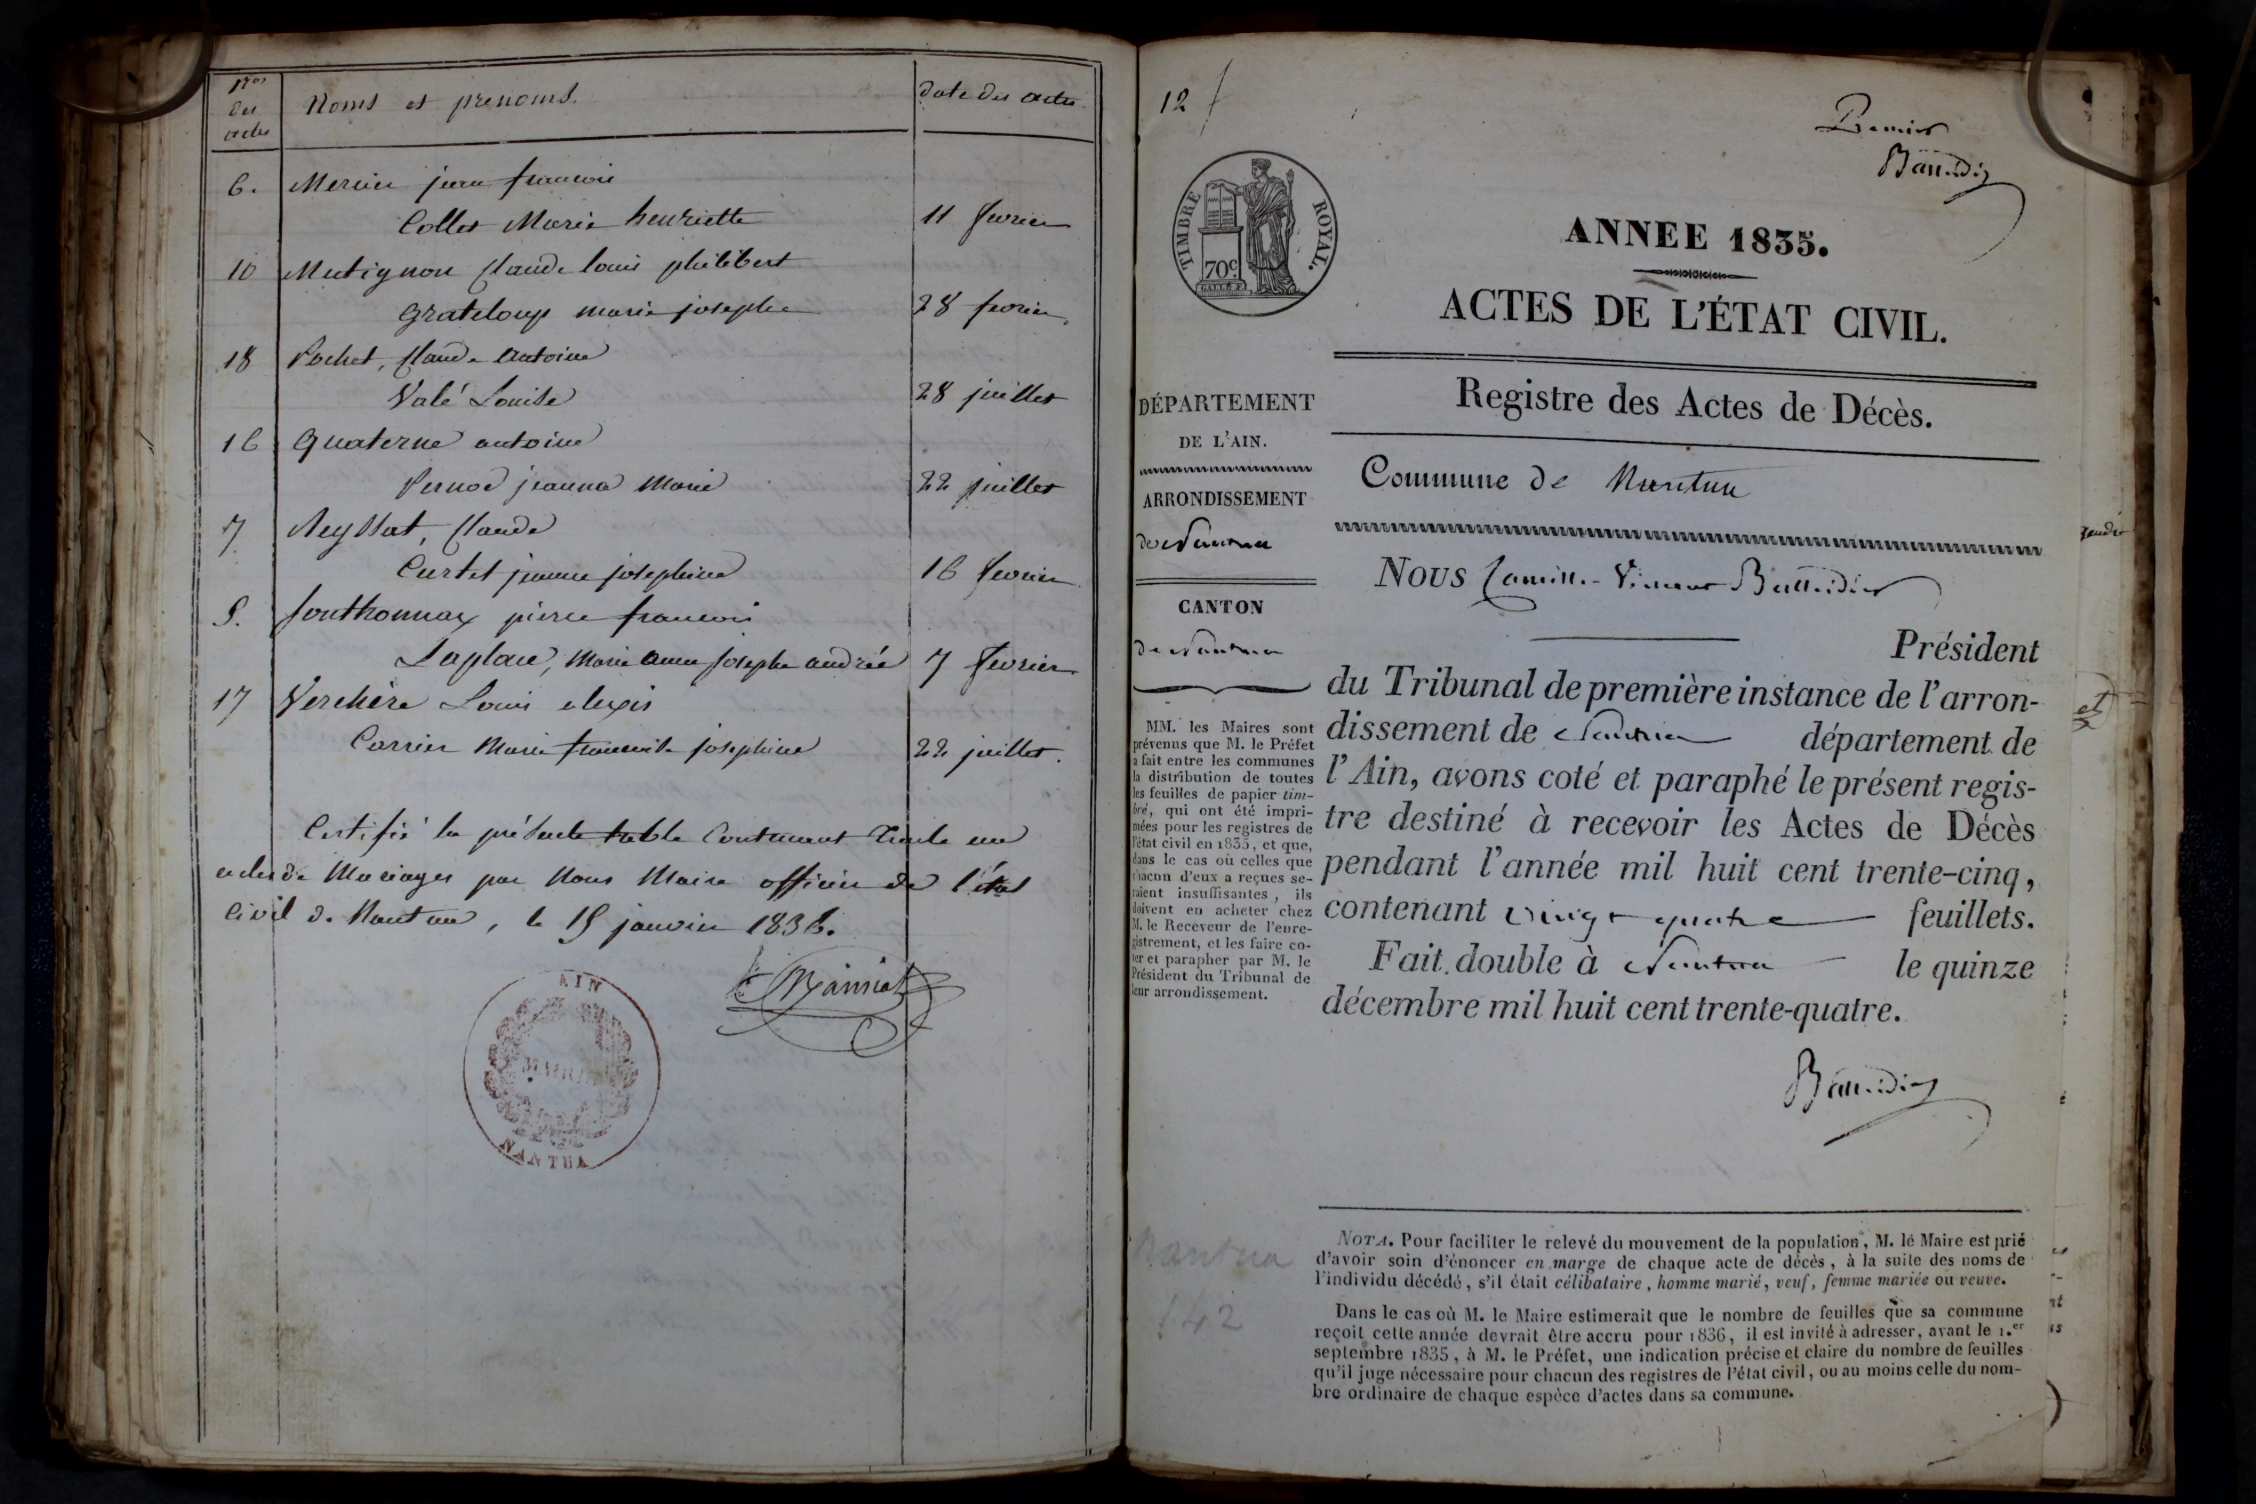 Nos
des
actes
Noms et prenoms.
date des actes
6. Mercier jean francois
Collet Marie henriette 11 fevrier
10 Mutignon Claude louis philibert
grateloup marie josephe 28 fevrier
18 Pochet, Claude antoine
Valé Louise 28 juillet
16 Quaterne antoine
Pernod jeanna Marie 22 juillet
7. Reyssat, Claude
Curtet jeanne josephine 16 fevrier
5. Southonnax pierre francois
Laplace, Marie anne Josephe andrée 7 fevrier
17 Verchère Louis alexis
Carrier Marie francoise josephine 22 juillet.
Certifié la présente table Contenant Trente un
actes de Mariages par Nous Maire officier de l'état
Civil de Nantua, le 15 janvier 1836.
AIN
MAIRIE
NANTUA
12
Premier
TIMBRE ROYAL.
70c.
ANNEE 1835.
ACTES DE L'ÉTAT CIVIL.
Registre des Actes de Décès.
DÉPARTEMENT
DE L'AIN.
ARRONDISSEMENT
de Nantua
CANTON
de Nantua
MM. les Maires sont
prévenus que M. le Préfet
a fait entre les communes
la distribution de toutes
les feuilles de papier tim-
bré, qui ont été impri-
mées pour les registres de
l'état civil en 1835, et que,
dans le cas où celles que
chacun d'eux a reçues se-
raient insuffisantes, ils
doivent en acheter chez
M. le Receveur de l'enre-
gistrement, et les faire co-
ter et parapher par M. le
Président du Tribunal de
leur arrondissement.
Commune de Nantua
Nous Camille-Vincent
Président
du Tribunal de première instance de l'arron-
dissement de Nantua département de
l'Ain, avons coté et paraphé le présent regis-
tre destiné à recevoir les Actes de Décès
pendant l'année mil huit cent trente-cinq,
contenant vingt quatre feuillets.
Fait double à Nantua le quinze
décembre mil huit cent trente-quatre.
Nantua
142
NOTA. Pour faciliter le relevé du mouvement de la population, M. le Maire est prié
d'avoir soin d'énoncer en marge de chaque acte de décès, à la suite des noms de
l'individu décédé, s'il était célibataire, homme marié, veuf, femme mariée ou veuve.
Dans le cas où M. le Maire estimerait que le nombre de feuilles que sa commune
reçoit cette année devrait être accru pour 1836, il est invité à adresser, avant le 1.er
septembre 1835, à M. le Préfet, une indication précise et claire du nombre de feuilles
qu'il juge nécessaire pour chacun des registres de l'état civil, ou au moins celle du nom-
bre ordinaire de chaque espèce d'actes dans sa commune.